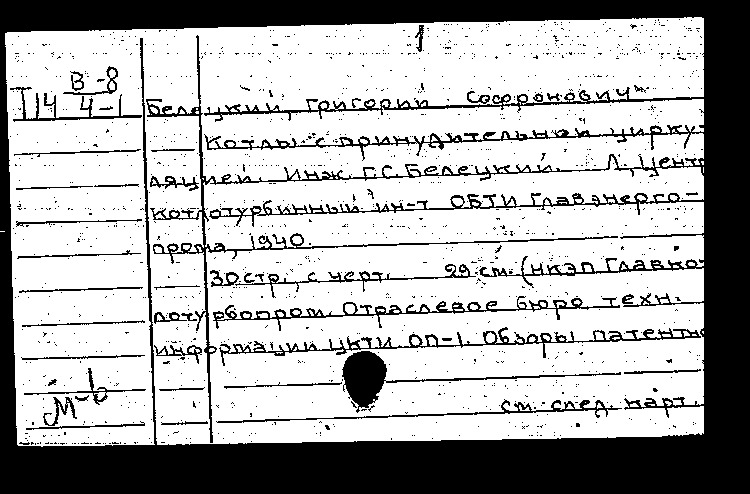 1
В-8
П14 4-1
Белецкий, Григорий Софронович
Котлы с принудительной цирку-
ляцией. Инж. Г.С. Белецкий. Л, Центр
котлотурбинный ин-т ОБТИ Главэнерго-
прома, 1940.
30 стр., с черт. 29 см. (НКЭП Главко-
лотурбопром. Отраслевое бюро техн.
информации ЦКТИ. ОП-1. Обзоры патентно
М-б
см. след. карт.